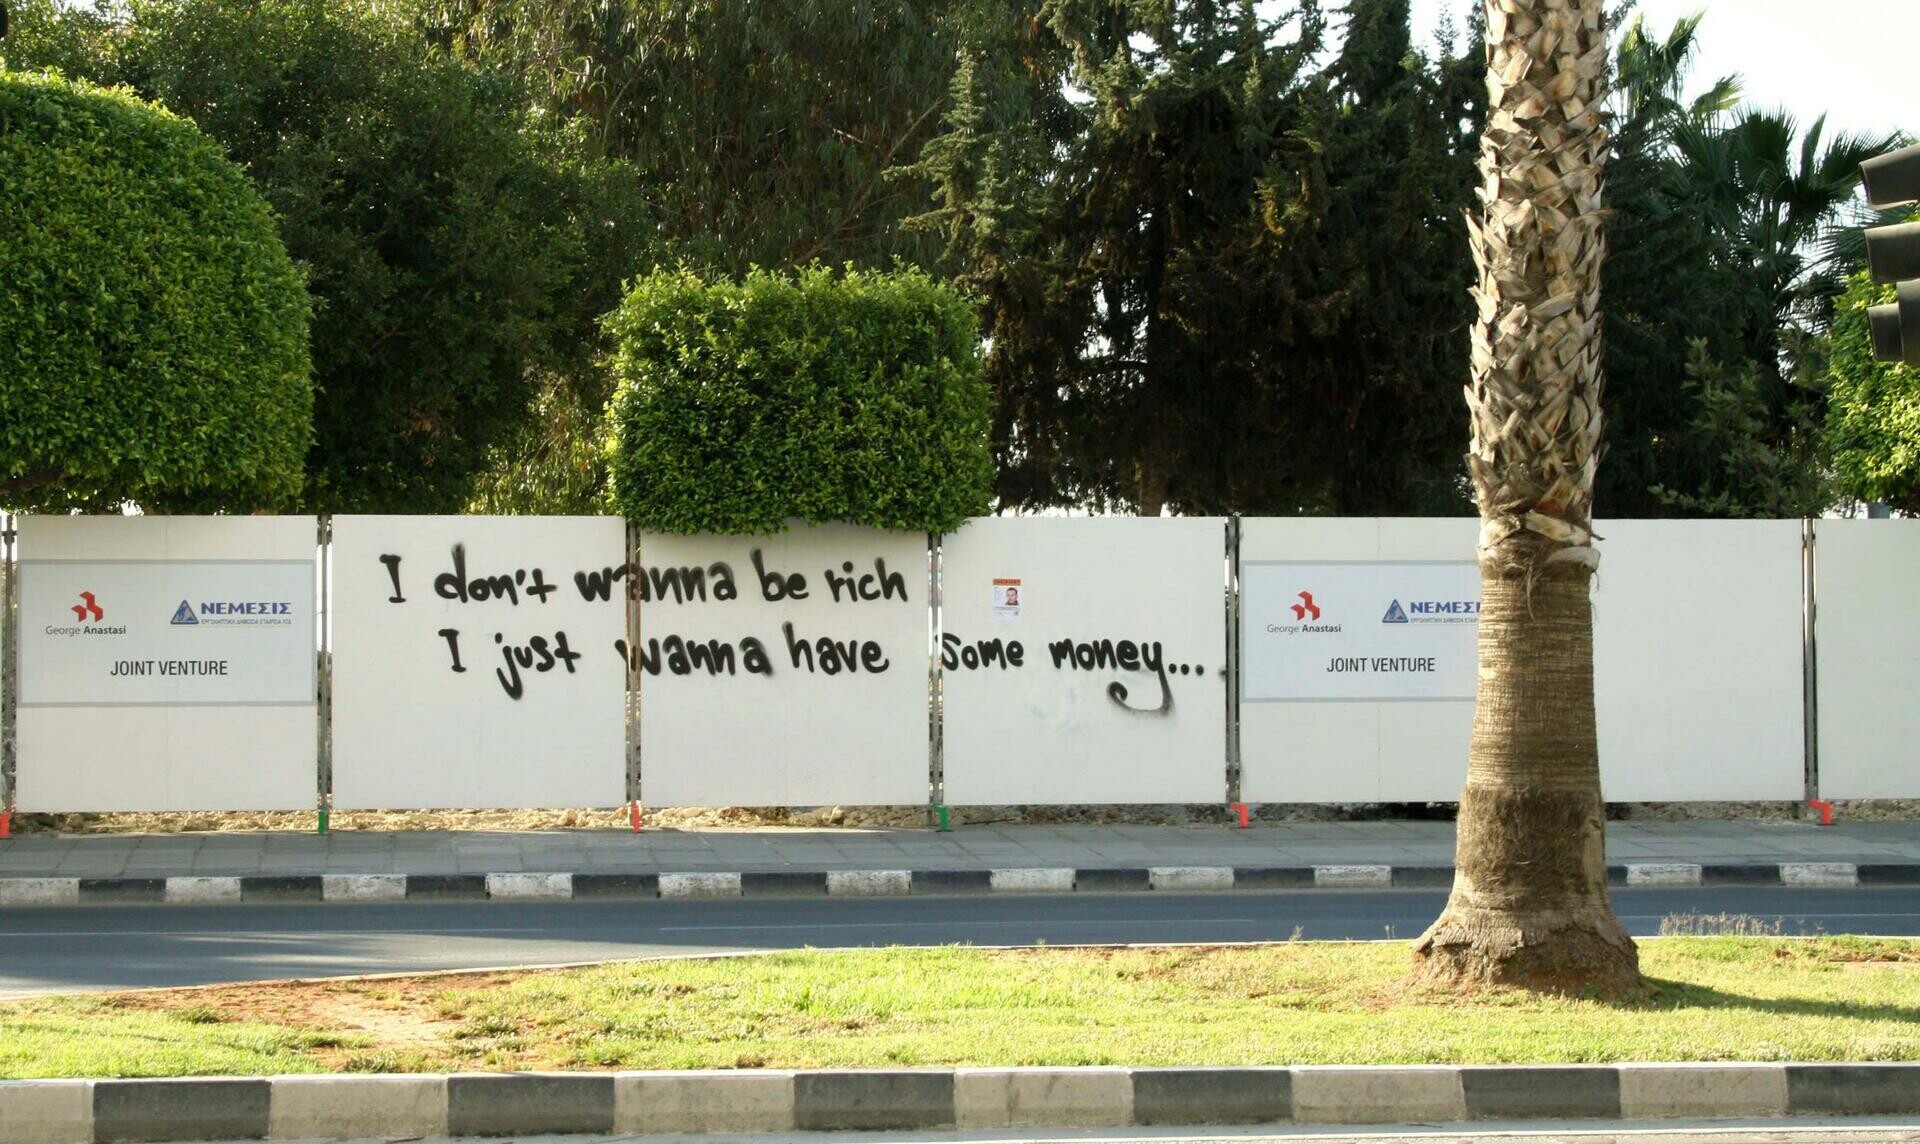 I don't wanna be rich
I just wanna have some money...
George Anastasi
ΝΕΜΕΣΙΣ
ΕΡΓΟΛΗΠΤΙΚΗ ΔΗΜΟΣΙΑ ΕΤΑΙΡΕΙΑ ΛΤΔ
JOINT VENTURE
George Anastasi
ΝΕΜΕΣΙ
JOINT VENTURE